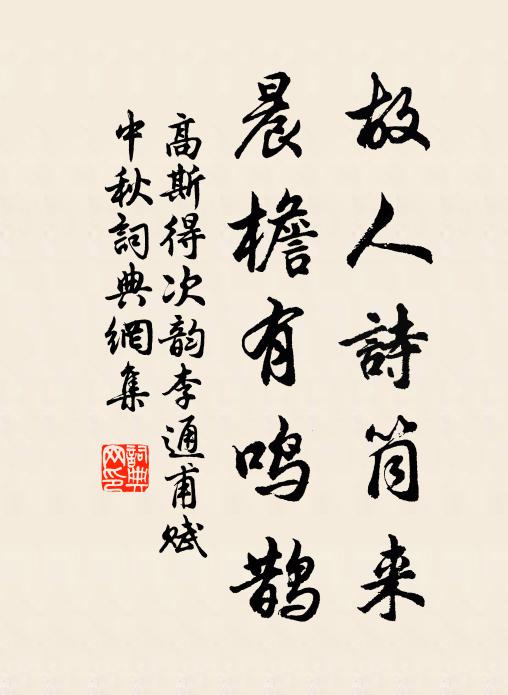 故人詩筒来
晨檐有鸣鹊
高斯得次韵李通甫赋
中秋詞典網集
詞典网印